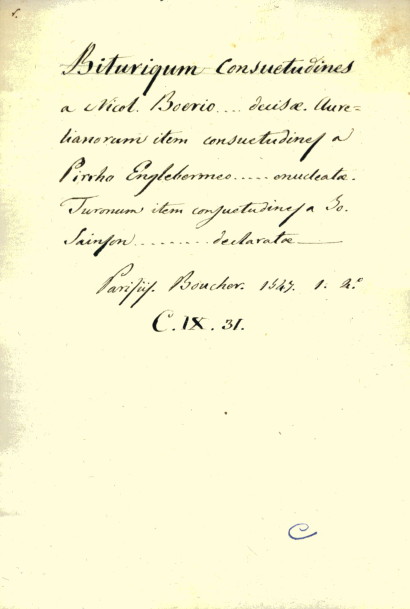 Biturigum Consuetudines
a Nicol. Boerio.... decisæ. Aure-
lianorum item consuetudines a
Pirrho Englebermeo..... enucleatæ.
Turonum item consuetudines a Jo.
Sainson ......... declaratæ
Parisiis. Boucher. 1547. 1. 4.º
C. IX. 31.
C